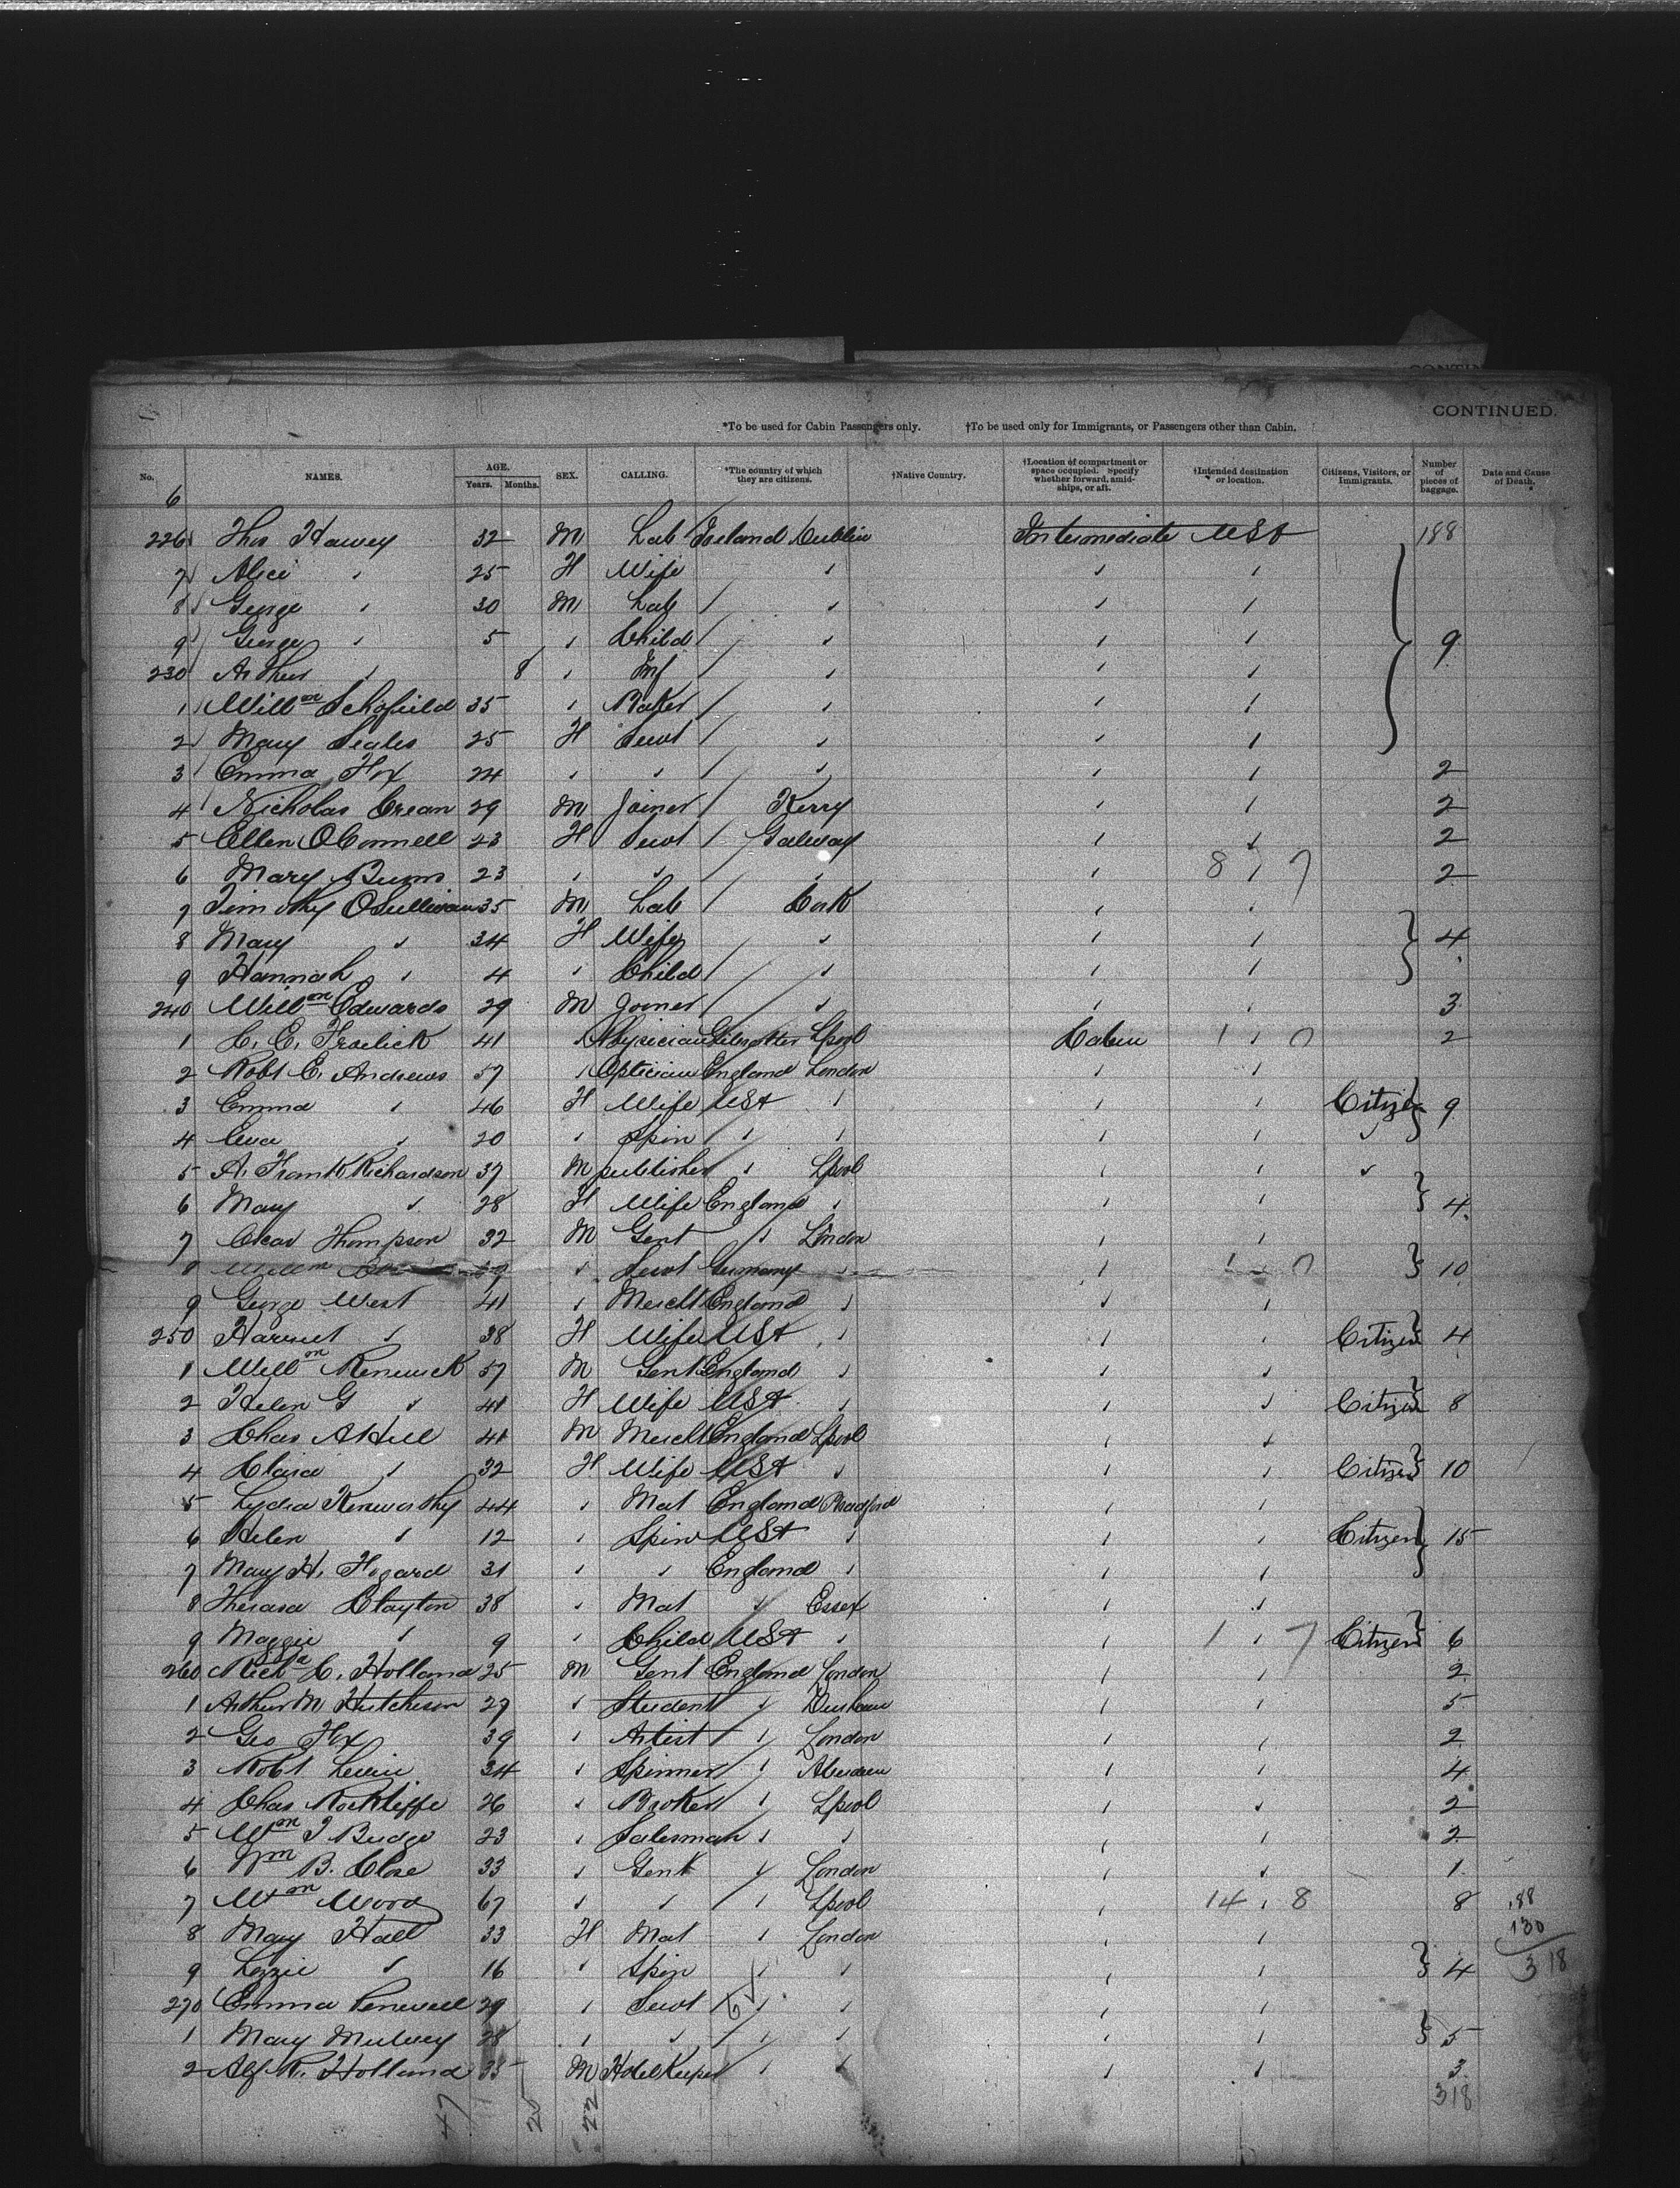 CONTINUED.
*To be used for Cabin Passengers only. †To be used only for Immigrants, or Passengers other than Cabin.
No. NAMES. AGE. Years. Months. SEX. CALLING. *The country of which they are citizens. †Native Country. †Location of compartment or space occupied. Specify whether forward, amidships, or aft. †Intended destination or location. Citizens, Visitors, or Immigrants. Number of pieces of baggage. Date and Cause of Death.
6
226 Thos Harvey 32 M Lab Ireland Dublin Intermediate USA 188
7 Alice " 25 F Wife " " "
8 George " 30 M Lab " " "
9 George " 5 " Child " " " 9
230 Arthur " 8 " Inf " " "
1 Willm Schofield 35 " Baker " " "
2 Mary Seales 25 F Servt " " "
3 Emma Fox 24 " " " " " 2
4 Nicholas Crean 29 M Joiner Kerry " " 2
5 Ellen OConnell 23 F Servt Galway " " 2
6 Mary Burns 23 " " " " 8 " 7 2
7 Timothy OSullivan 35 M Lab Cork " "
8 Mary " 34 F Wife " " " 4
9 Hannah " 4 " Child " " "
240 Willm Edwards 29 M Joiner " " " 3
1 C. E. Froelick 41 " Physician Lpool Cabin 1 " 0 2
2 Robt E. Andrews 57 " Optician England London " "
3 Emma " 46 F Wife USA " " " Citizen 9
4 Eva " 20 " Spin " " " " "
5 A. Frank Richardson 37 M publisher " Lpool " " "
6 Mary " 28 F Wife England " " " 4
7 Oscar Thompson 32 M Gent " London " "
8 Willm " Servt Germany " " 1 " 0 10
9 George West 41 " Mercht England " " "
250 Harriet " 38 F Wife USA " " " Citizen 4
1 Willm Renwick 57 M Gent England " " "
2 Helen G " 41 F Wife USA " " " Citizen 8
3 Chas A Hill 41 M Mercht England Lpool " "
4 Clara " 32 F Wife USA " " " Citizen 10
5 Lydia Kenworthy 44 " Mat England Bradford " "
6 Helen " 12 " Spin USA " " " Citizen 15
7 Mary H. Hogard 31 " " England " " "
8 Theresa Clayton 38 " Mat " Essex " "
9 Maggie " 9 " Child USA " " 1 " 7 Citizen 6
260 Richd C. Holland 25 M Gent England London " " 2
1 Arthur M Hutcheson 27 " Student " Durham " " 5
2 Geo Fox 39 " Artist " London " " 2
3 Robt 34 " Spinner " Aberdeen " " 4
4 Chas Rockliffe 26 " Broker " Lpool " " 2
5 Wm J Budge 23 " Salesman " " " " 2
6 Wm B. Close 33 " Gent " London " " 1
7 Wm Wood 67 " " " Lpool " 14 " 8 8 188
8 Mary Hall 33 F Mat " London " " 130
9 Lizzie " 16 " Spin " " " " 4 318
270 Emma 29 " Servt " " " "
1 Mary Mulvey 28 " " " " " " 5
2 Alf R. Holland 35 M Hotel Keeper " " " " 3
318
47 25 22